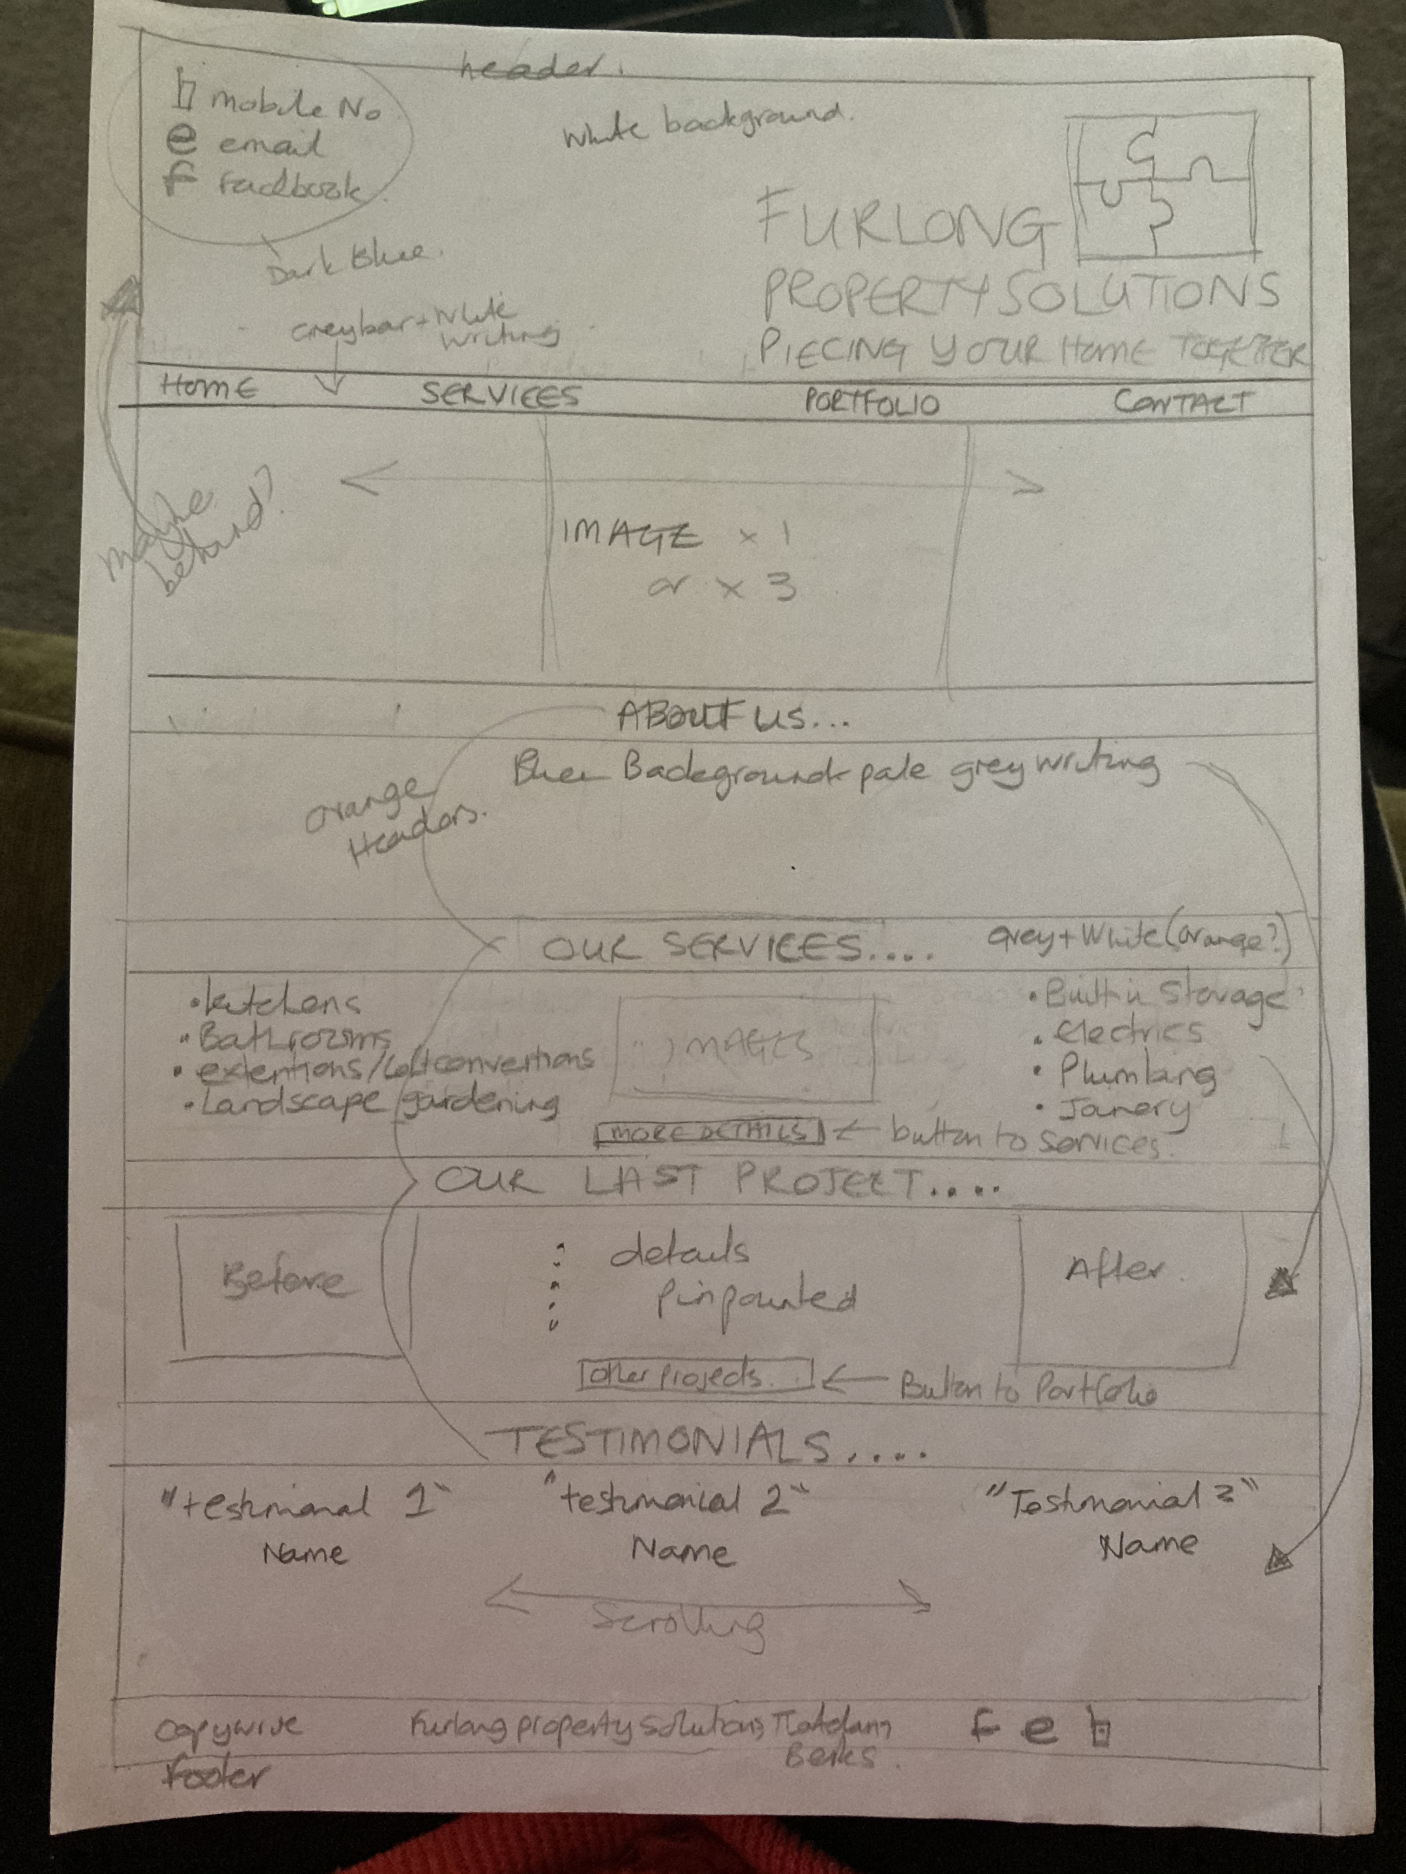 header.
mobile No
e email
f facebook.
White background.
Dark Blue.
FURLONG
PROPERTY SOLUTIONS
PIECING YOUR Home TOGETHER
Grey bar + White
writing
HOME SERVICES PORTFOLIO CONTACT
maybe
behind?
IMAGE x 1
or x 3
ABOUT US...
Blue Background pale grey writing
orange
Headers.
OUR SERVICES....
Grey + White (orange?)
• kitchens
• Bathrooms
• extentions/loft convertions
• Landscape gardening
IMAGES
• Built in Storage
• Electrics
• Plumbing
• Joinery
MORE DETAILS ← button to services.
OUR LAST PROJECT....
Before
details
pinpointed
After
other projects.. ← Button to Portfolio
TESTIMONIALS....
"testimonial 1" "testimonial 2" "Testimonial 3"
Name Name Name
Scrolling
Copywrite Furlong property solutions, Berks. f e
footer